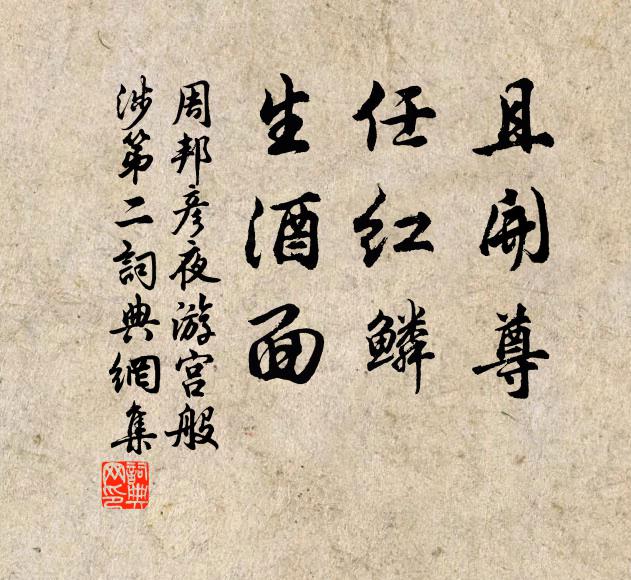 且開尊
任紅鱗
生酒面
周邦彥夜游宮般
涉第二詞典網集
詞典网印